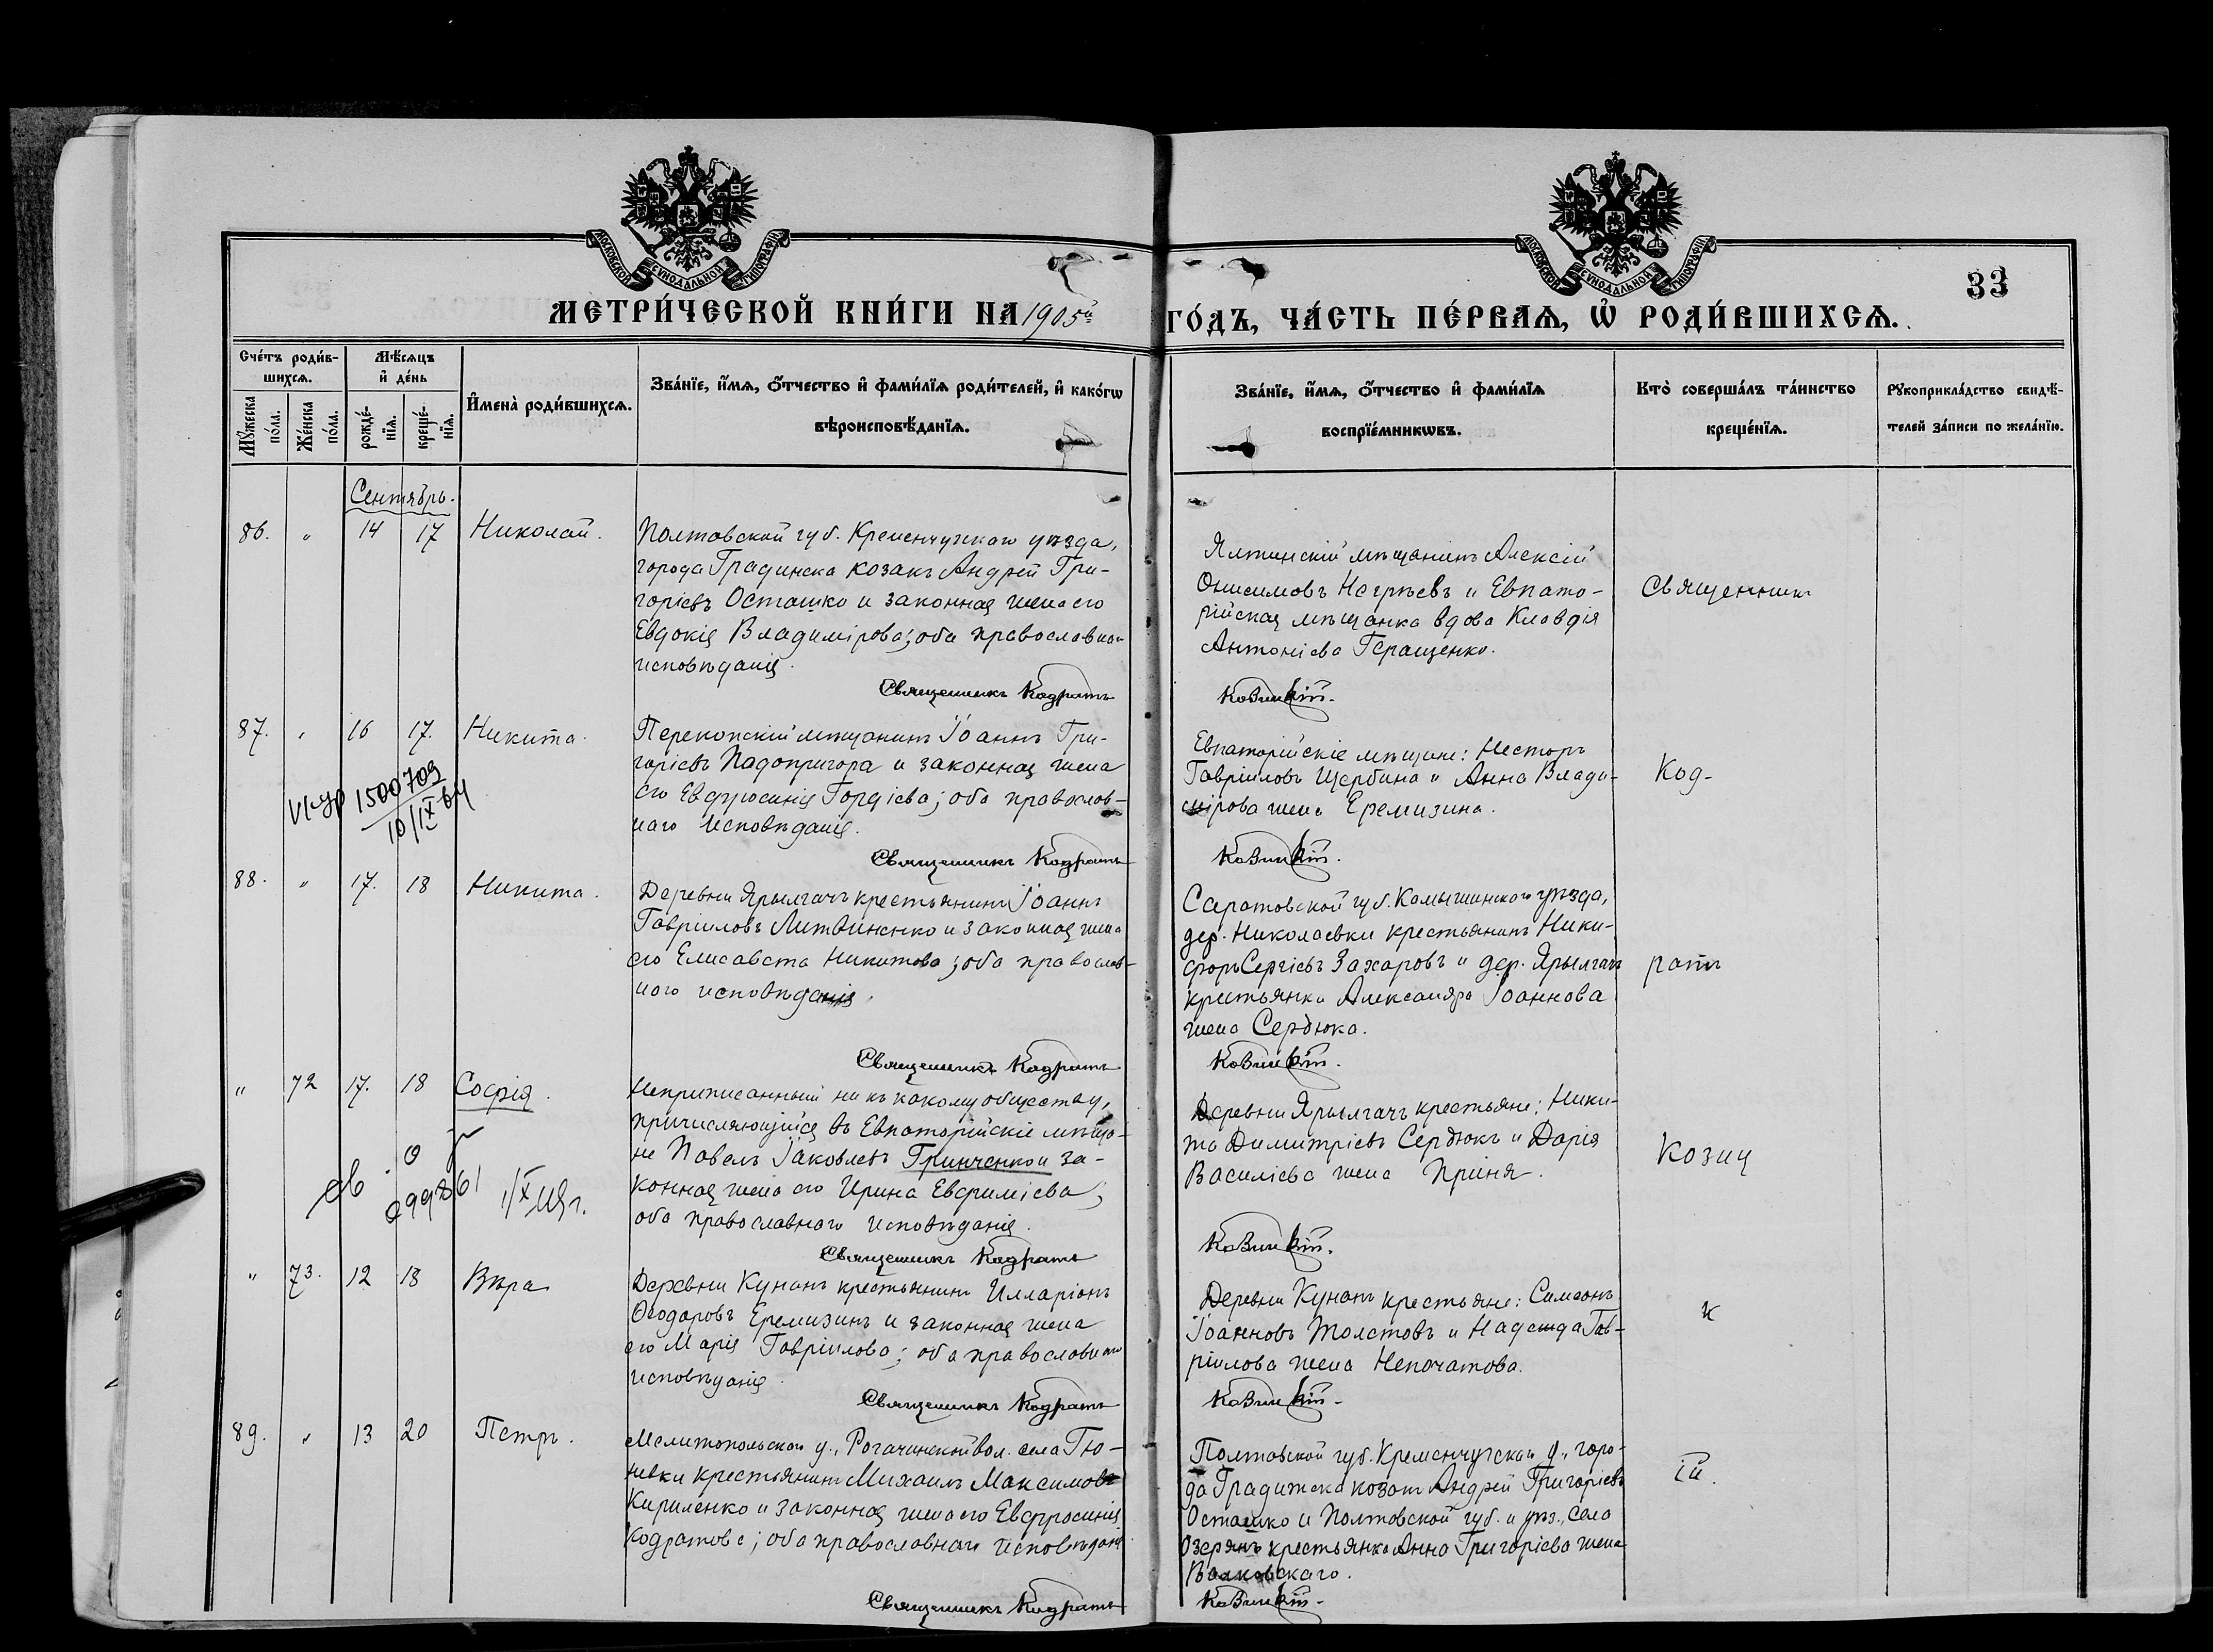 МОСКОВСКОЙ СѴНОДАЛЬНОЙ ТИПОГРАФІИ
МОСКОВСКОЙ СѴНОДАЛЬНОЙ ТИПОГРАФІИ
33
МЕТРИ́ЧЕСКОЙ КНИ́ГИ НА 1905й ГО́ДЪ, ЧА́СТЬ ПЕ́РВАѦ, Ѽ РОДИ́ВШИХСѦ.
Сче́тъ роди́в-
шихсѧ.
Мꙋ́жеска
по́ла.
Же́нска
по́ла.
Мѣ́сѧцъ
и҆ де́нь
рожде́-
нїѧ.
креще́-
нїѧ.
И҆мена̀ роди́вшихсѧ.
Зва́нїе, и҆́мѧ, ѻ҆́тчество и҆ фами́лїѧ роди́телей, и҆ како́гѡ
вѣроисповѣ́данїѧ.
Зва́нїе, и҆́мѧ, ѻ҆́тчество и҆ фами́лїѧ
воспрїе́мникѡвъ.
Кто̀ соверша́лъ та́инство
креще́нїѧ.
Рꙋкоприкла́дство свидѣ́-
телей за́писи по жела́нїю.
Сентябрь.
86. " 14 17 Николай.
Полтавской губ. Кременчугскаго уѣзда,
города Градинска козакъ Андрей Гри-
горіевъ Осташко и законная жена его
Евдокія Владимірова; оба православнаго
исповѣданія.
Священникъ Кодратъ
Ялтинскій мѣщанинъ Алексій
Онисимовъ Негрѣевъ и Евпато-
рійская мѣщанка вдова Клавдія
Антоніева Геращенко.
Козицкій.
Священникъ
87. " 16 17. Никита.
Перекопскій мѣщанинъ Іоаннъ Гри-
горіевъ Падопригора и законная жена
его Евфросинія Гордіева; оба православ-
наго исповѣданія.
Священникъ Кодратъ
Евпаторійскіе мѣщане: Несторъ
Гавріиловъ Щербина и Анна Влади-
мірова жена Еремизина.
Козицкій.
Код-
1500709
10/IX-64
88. " 17. 18 Никита.
Деревни Ярылгачъ крестьянинъ Іоаннъ
Гавріиловъ Литвиненко и законная жена
его Елисавета Никитова; оба православ-
наго исповѣданія.
Священникъ Кодратъ
Саратовской губ. Камышинскаго уѣзда,
дер. Николаевки крестьянинъ Ники-
форъ Сергіевъ Захаровъ и дер. Ярылгачъ
крестьянка Александра Іоаннова
жена Сердюка.
Козицкій.
ратъ
" 72 17. 18 Софія.
Неприписанный ни къ какому обществу,
причисляющійся въ Евпаторійскіе мѣща-
не Павелъ Іаковлевъ Гринченко и за-
конная жена его Ирина Евфиміева;
оба православнаго исповѣданія.
Священникъ Кодратъ
Деревни Ярылгачъ крестьяне: Ники-
та Димитріевъ Сердюкъ и Дарія
Василіева жена Приня.
Козицкій.
Козиц
" 73. 12 18 Вѣра
Деревни Кунанъ крестьянинъ Илларіонъ
Ѳеодоровъ Еремизинъ и законная жена
его Марія Гавріилова; оба православнаго
исповѣданія.
Священникъ Кодратъ
Деревни Кунанъ крестьяне: Симеонъ
Іоанновъ Толстовъ и Надежда Гав-
ріилова жена Непочатова.
Козицкій.
к
89. " 13 20 Петръ.
Мелитопольскаго у., Рогачинской вол. села Тю-
невки крестьянинъ Михаилъ Максимовъ
Кириленко и законная жена его Евфросинія
Кодратова; оба православнаго исповѣданія
Священникъ Кодратъ
Полтавской губ. Кременчугскаго у., горо-
да Градижска козакъ Андрей Григоріевъ
Осташко и Полтавской губ. и уѣз., села
Озерянъ крестьянка Анна Григоріева жена
Козицкій.
ій.